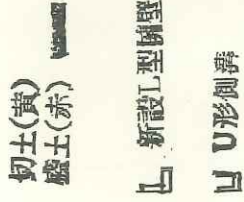 切土(黄)
盛土(赤)
新設L型擁壁
U形側溝